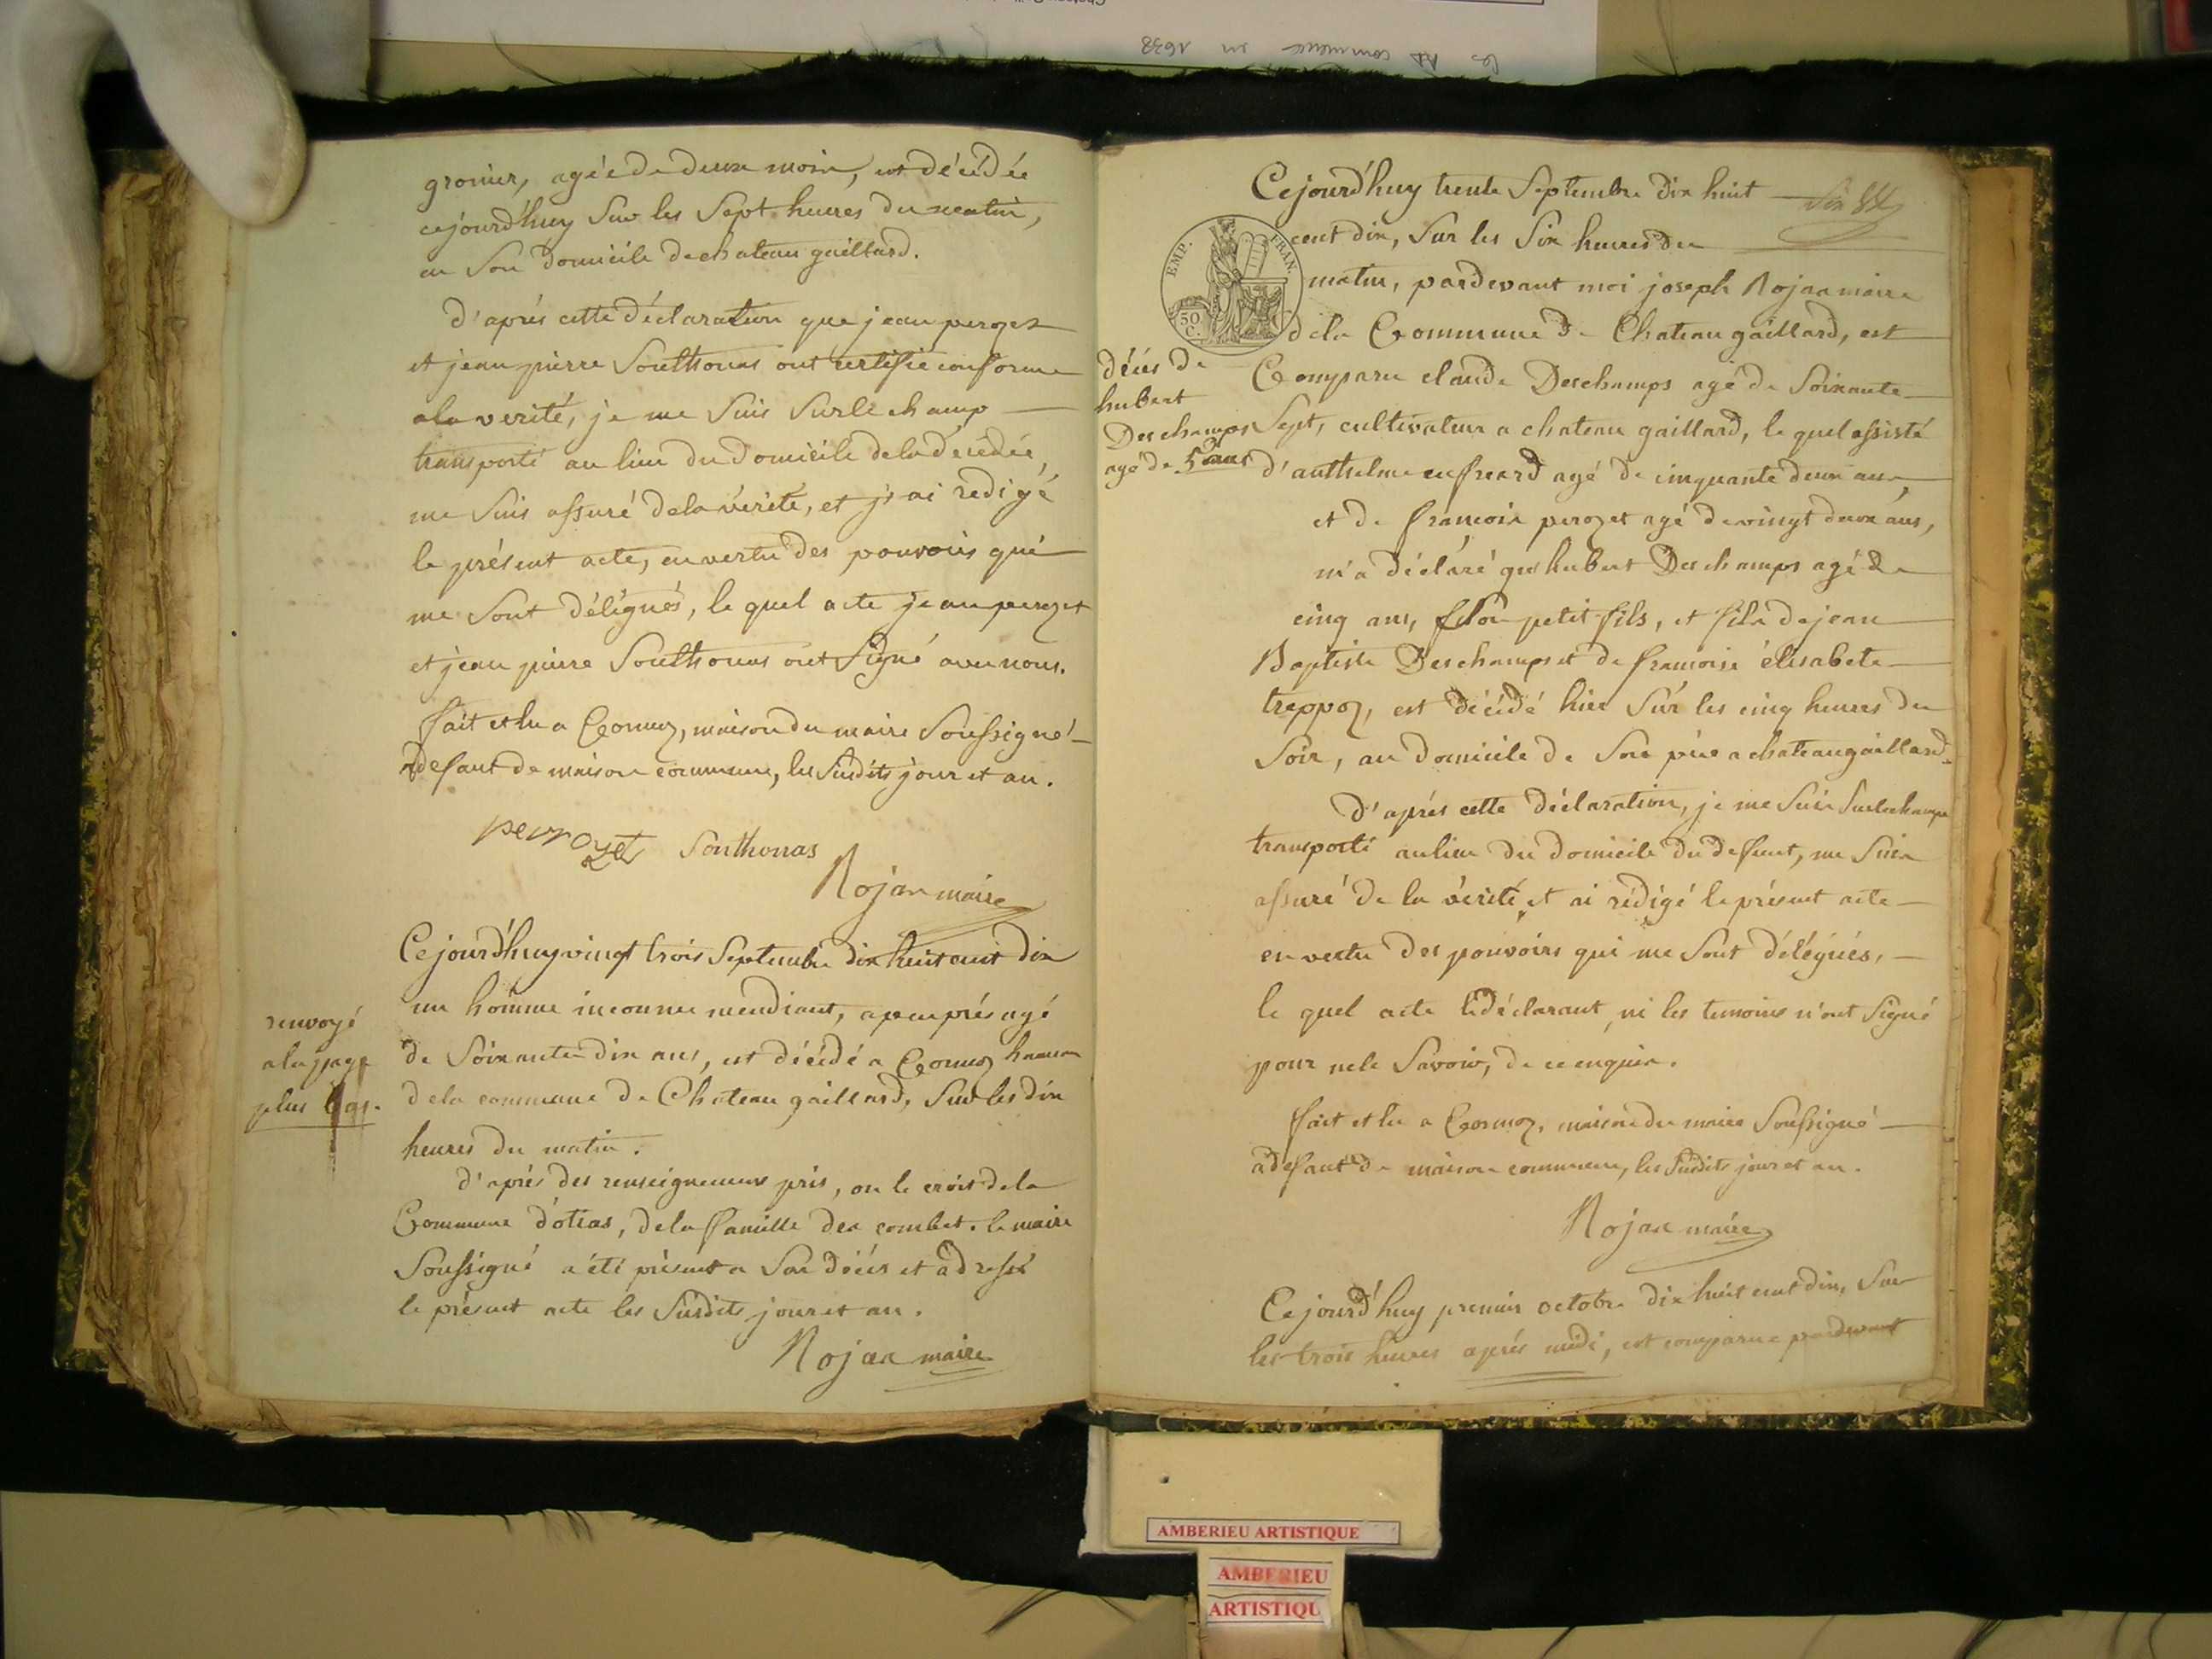 le RP commence en 1698
gronier, agée de deux mois, est décédée
cejourd'huy Sur les Sept heures du matin,
en Son domicile de chateau gaillard.
d'aprés cette déclaration que jean perozet
et jean pierre Southonas ont certifié conforme
a la verité, je me Suis Surle champ
transporté au lieu du domicile dela décédée,
me Suis assuré dela vérité, et j'ai redigé
le présent acte, en vertu des pouvoirs qui
me Sont délégués, le quel acte jean perozet
et jean pierre Southonas ont Signé avec nous.
fait et lu a Cormoz, maison du maire Soussigné
a defaut de maison commune, les Susdits jour et an.
perrozet Southonas
Rojan maire
Cejourd'huy vingt trois Septembre dix huit cent dix
un homme inconnu mendiant, apeuprés agé
de Soixante dix ans, est décédé a Cormoz hameau
dela commune de Chateau gaillard, Sur les dix
heures du matin.
renvoyé
a la page
plus bas.
d'aprés des renseignemens pris, on le croit dela
Commune d'otias, dela famille des combet. le maire
Soussigné a été présent a Son décés et a dressé
le présent acte les Susdits jour et an.
Rojan maire
Cejourd'huy trente Septembre dix huit
cent dix, Sur les Six heures du
matin, pardevant moi joseph Rojan maire
dela Commune de Chateau gaillard, est
Comparu claude Deschamps agé de Soixante
Sept, cultivateur a chateau gaillard, le quel assisté
d'anthelme cusfreard agé de cinquante deux ans,
et de francois perozet agé de vingt deux ans,
m'a déclaré que hubert Deschamps agé de
cinq ans, Son petit fils, et fils de jean
Baptiste Deschamps et de francoise élisabete
treppoz, est décédé hier Sur les cinq heures du
Soir, au domicile de Son pére a chateaugaillard.
EMP. FRAN.
50 C.
décés de
hubert
Deschamps
agé de 5 ans
d'aprés cette déclaration, je me Suis Surlechamp
transporté aulieu du domicile du defunt, me Suis
assuré de la vérité, et ai rédigé le présent acte
en vertu des pouvoirs qui me Sont délégués,
le quel acte le déclarant, ni les temoins n'ont Signé
pour nele Savoir, de ce enquis.
fait et lu a Cormoz, maison du maire Soussigné
a defaut de maison commune, les Susdits jour et an.
Rojan maire
Cejourd'huy premier octobre dix huit cent dix, Sur
les trois heures aprés midi, est comparu pardevant
AMBERIEU ARTISTIQUE
AMBERIEU
ARTISTIQU